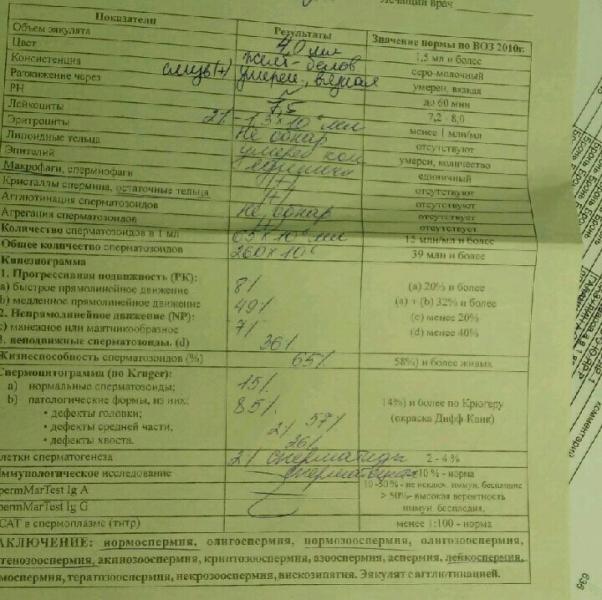 Лечащий врач
Показатели Результаты Значение нормы по ВОЗ 2010г.
Объем эякулята 4,0 мл 1,5 мл и более
Цвет желт-белов серо-молочный
Консистенция слизь(+) умерен, вязкая умерен, вязкая
Разжижение через до 60 мин
PH 7,5 7,2 - 8,0
Лейкоциты менее 1 млн/мл
Эритроциты Не обнар отсутствуют
Липоидные тельца умерен кол умерен, количество
Эпителий единичн единичный
Макрофаги, спермиофаги отсутствуют
Кристаллы спермина, остаточные тельца отсутствуют
Агглютинация сперматозоидов отсутствуют
Агрегация сперматозоидов Не обнар отсутствует
Количество сперматозоидов в 1 мл 65×10⁶ мл 15 млн/мл и более
Общее количество сперматозоидов 260×10⁶ 39 млн и более
Кинезиограмма
1. Прогрессивная подвижность (PK):
а) быстрое прямолинейное движение 8% (a) 20% и более
b) медленное прямолинейное движение 49% (a) + (b) 32% и более
2. Непрямолинейное движение (NP): (c) менее 20%
с) манежное или маятникообразное 7% (d) менее 40%
3. неподвижные сперматозоиды. (d) 36%
Жизнеспособность сперматозоидов (%) 65% 58%) и более живых
Спермоцитограмма (по Kruger):
a) нормальные сперматозоиды; 15%
b) патологические формы, из них: 85% 14%) и более по Крюгеру
• дефекты головки; 57% (окраска Дифф-Квик)
• дефекты средней части, 2%
• дефекты хвоста. 26%
клетки сперматогенеза 2% сперматиды 2 - 4 %
Иммунологическое исследование 10% - норма
SpermMarTest Ig A 10 -50% - не исключ. иммун. бесплодие
SpermMarTest Ig G > 50% - высокая вероятность
иммун. бесплодия.
САТ в спермоплазме (титр) менее 1:100 - норма
ЗАКЛЮЧЕНИЕ: нормоспермия, олигоспермия, нормозооспермия, олигозооспермия,
астенозооспермия, акинозооспермия, криптозооспермия, азооспермия, аспермия, лейкоспермия,
гемоспермия, тератозооспермия, некрозооспермия, вискозипатия. Эякулят с агглютинацией.
комментарию